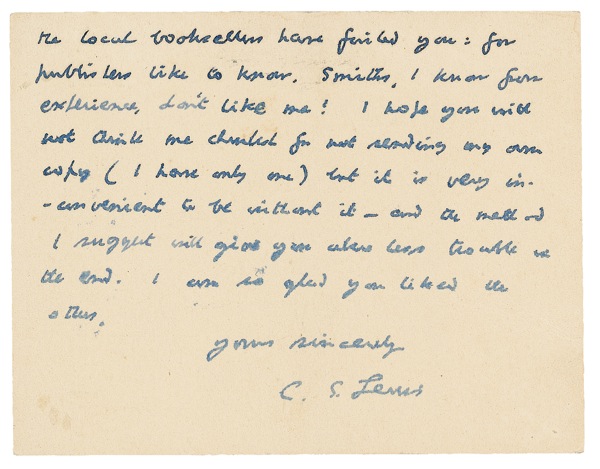 the local booksellers have failed you: for
publishers like to know. Smiths, I know from
experience, don't like me! I hope you will
not think me churlish for not sending my own
copy (I have only one) but it is very in-
-convenient to be without it – and the method
I suggest will give you less trouble in
the end. I am so glad you liked the
others.
yours sincerely
C. S. Lewis